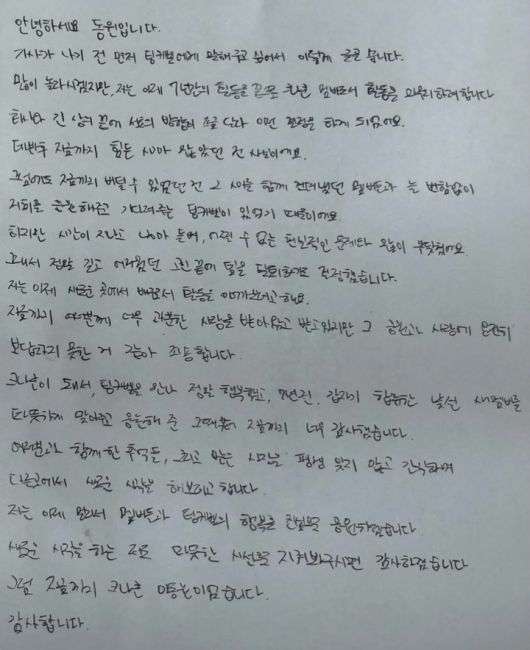 안녕하세요 동원입니다.
기사가 나기 전 먼저 팅커벨에게 말해주고 싶어서 이렇게 글을 씁니다.
많이 놀라시겠지만, 저는 이제 7년간의 활동을 끝으로 크나큰 멤버로서 활동을 마무리하려합니다
회사와 긴 상의 끝에 서로의 방향이 조금 달라 이런 결정을 하게 되었어요.
데뷔후 지금까지 힘든 시간이 많았던 건 사실이에요.
그럼에도 지금까지 버틸수 있었던건 그 시간을 함께 견뎌냈던 멤버들과 늘 변함없이
저희를 응원해주고 기다려주는 팅커벨이 있었기 때문이에요.
하지만 시간이 지나고 나이가 들어, 어쩔 수 없는 현실적인 문제와 많이 부딪혔어요.
그래서 정말 길고 어려웠던 고민 끝에 팀을 탈퇴하기로 결정했습니다.
저는 이제 새로운 곳에서 배우로서 활동을 이어가보려고해요.
지금까지 여러분께 너무 과분한 사랑을 받아왔고 받고있지만 그 응원과 사랑에 온전히
보답하지 못한 거 같아 죄송합니다.
크나큰이 돼서, 팅커벨을 만나 정말 행복했고, 7년전, 갑자기 합류한 낯선 새멤버를
따뜻하게 맞아주고 응원해 준 그때부터 지금까지 너무 감사했습니다.
여러분과 함께한 추억들, 그리고 받은 사랑을 평생 잊지 않고 간직하며
다른곳에서 새로운 시작을 해보려고 합니다.
저는 이제 멀리서 멤버들과 팅커벨의 행복을 진심으로 응원하겠습니다
새로운 시작을 하는 저를 따뜻한 시선으로 지켜봐주시면 감사하겠습니다
그럼 지금까지 크나큰 이동원이었습니다.
감사합니다.